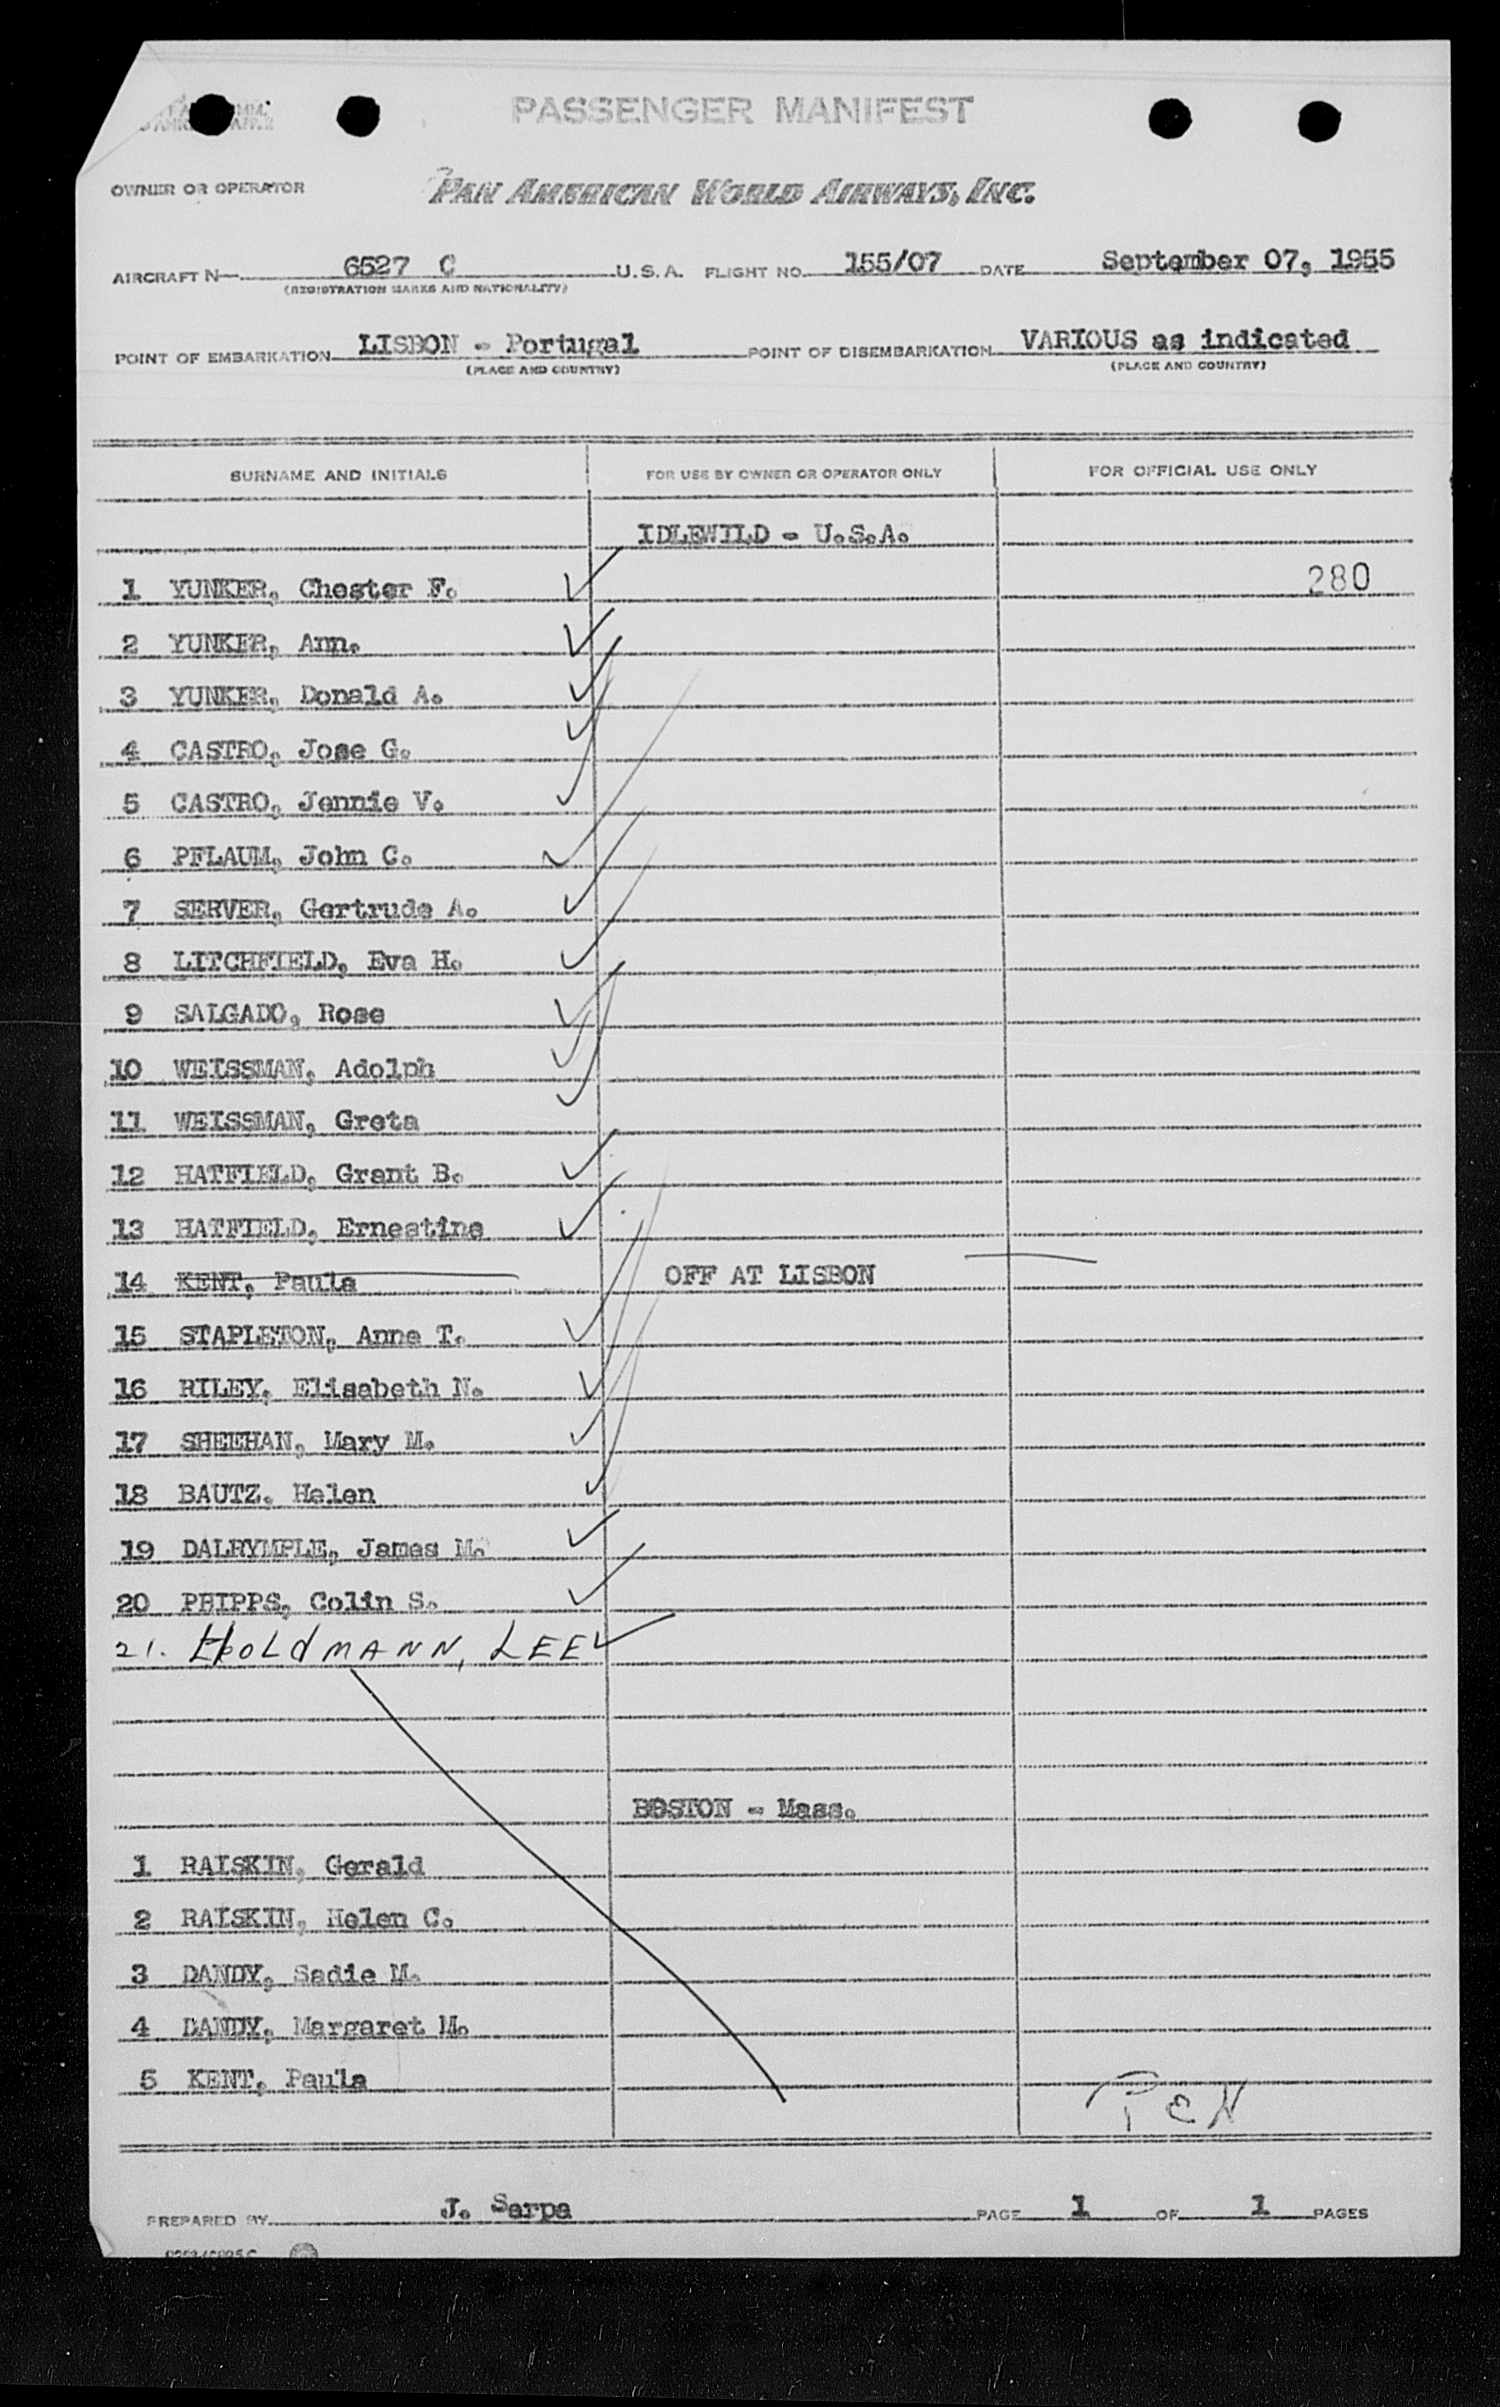 PASSENGER MANIFEST
OWNER OR OPERATOR PAN AMERICAN WORLD AIRWAYS, INC.
AIRCRAFT N— 6527 C U.S.A. FLIGHT NO. 155/07 DATE September 07, 1955
(REGISTRATION MARKS AND NATIONALITY)
POINT OF EMBARKATION LISBON - Portugal POINT OF DISEMBARKATION VARIOUS as indicated
(PLACE AND COUNTRY) (PLACE AND COUNTRY)
SURNAME AND INITIALS FOR USE BY OWNER OR OPERATOR ONLY FOR OFFICIAL USE ONLY
IDLEWILD - U.S.A.
1 YUNKER, Chester F. 280
2 YUNKER, Ann.
3 YUNKER, Donald A.
4 CASTRO, Jose G.
5 CASTRO, Jennie V.
6 PFLAUM, John C.
7 SERVER, Gertrude A.
8 LITCHFIELD, Eva H.
9 SALGADO, Rose
10 WEISSMAN, Adolph
11 WEISSMAN, Greta
12 HATFIELD, Grant B.
13 HATFIELD, Ernestine
14 KENT, Paula OFF AT LISBON
15 STAPLETON, Anne T.
16 RILEY, Elisabeth N.
17 SHEEHAN, Mary M.
18 BAUTZ. Helen
19 DALRYMPLE, James M.
20 PHIPPS, Colin S.
21. HOLdMANN, LEE
BOSTON - Mass.
1 RAISKIN, Gerald
2 RAISKIN, Helen C.
3 DANDY, Sadie M.
4 DANDY, Margaret M.
5 KENT, Paula
PREPARED BY J. Serpa PAGE 1 OF 1 PAGES